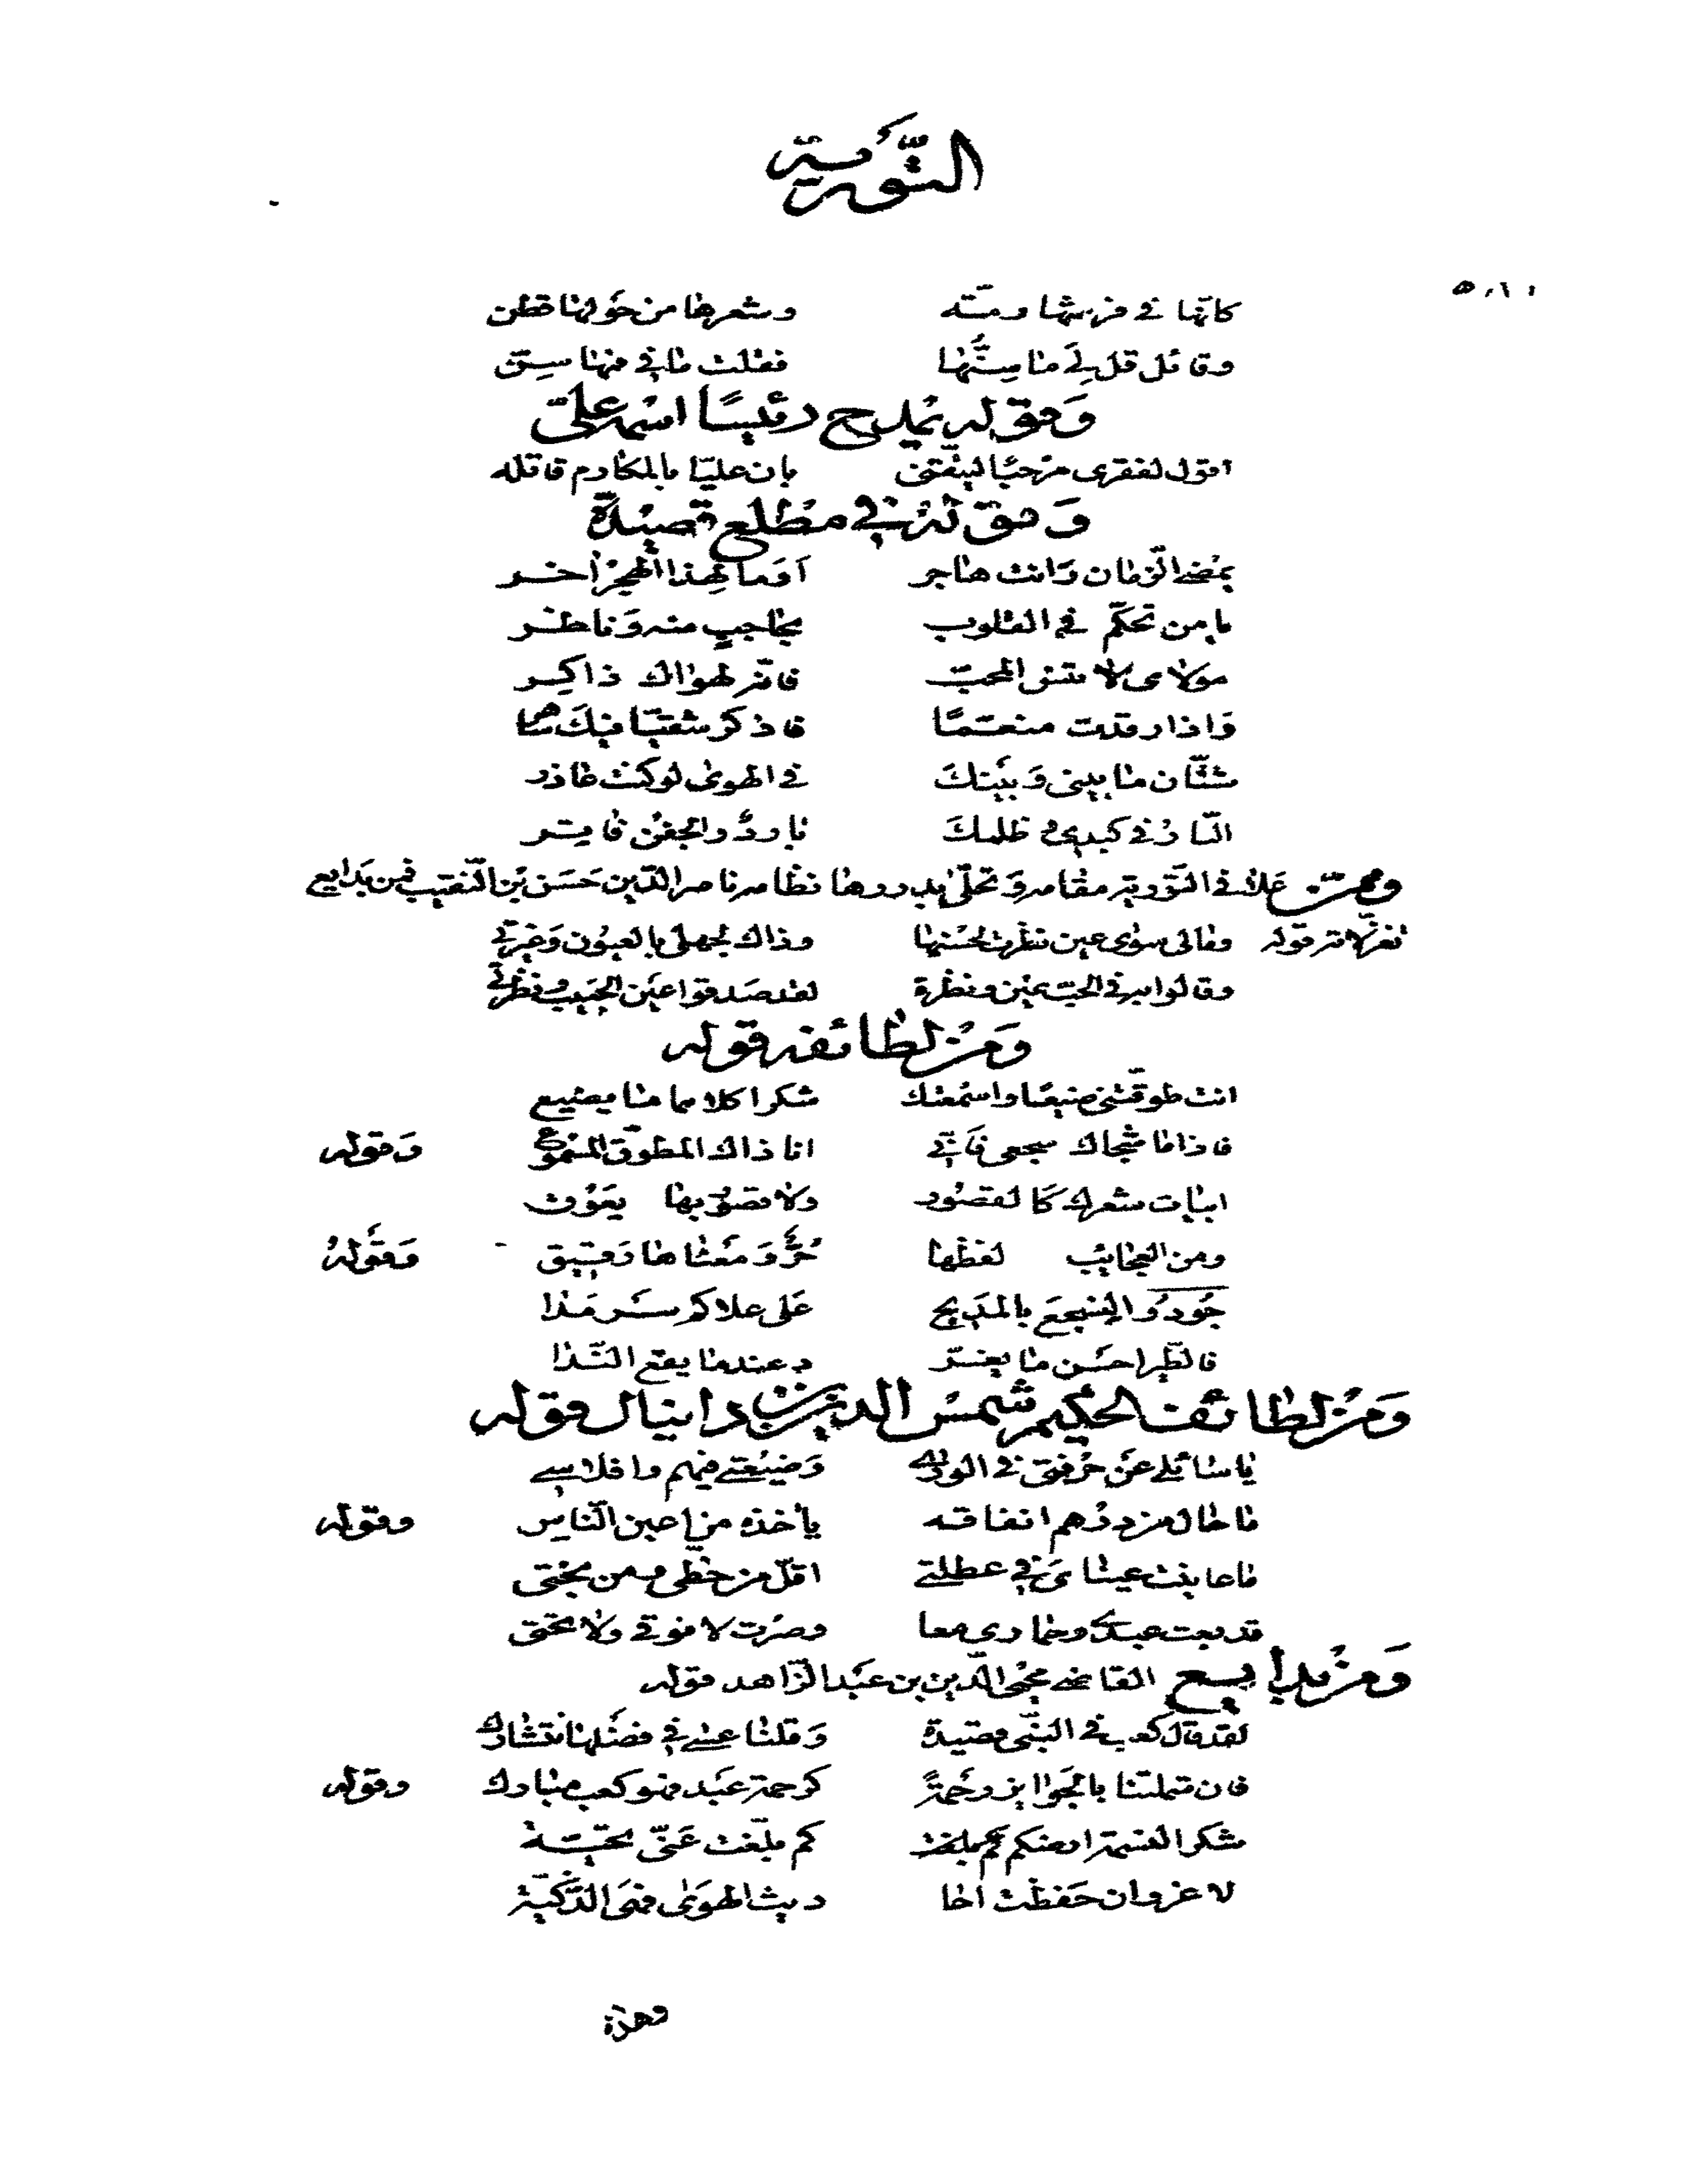 التَّورية
كانّها في فرشها رمّته وشعرها من حَولها قطن
وقائل قل لِي ما سِنُّها فقلت ما في فمها سِنّ
وَقوله يمدح رئيسًا اسمه علي
اقول لفقرى مرْحبًا لتيقّنى بان عليّا بالمكارم قاتله
وَقوله في مطلع قصيدة
يمْضى الزمان وَانت هاجر اَوَما لهذا الهجرْ اٰخر
يا من تحكّم في القلوب بحاجبٍ منه وَناظر
مولاى لا تنس المحبّ فانّه لهواك ذاكِر
وَاذا رقدت منعّمًا فاذكر شقيّا فيكَ ساهر
شتّان ما بينى وَبيْنكَ في الهوى لو كنت عاذر
النّار في كبدى وظلمكَ باردٌ والجفنُ فاتر
وممن عَلا في التّورية مقامه وَتحلّى بدررها نظامه ناصر الدّين حَسَن بْن النّقيب فمن بَدايع
تغزّلاته قوله ومالى سوى عين نظرت لحسْنها وذاك لجهلى بالعيُون وَغرتي
وقالوا به في الحبّ عيْن ونظرة لقد صَدقوا عَين الحَبيب ونظْرتي
وَمن لطائفه قوله
انت طوقّتنى صنيعًا واسْمعتك شكرا كلاهما ما يضيع
فاذا ما شَجاك سجعى فَانّي انا ذاك المطوّق المسْموع وَقوله
ابيات شعرك كَالقصُور ولا قصوُر بها يعَوُق
ومن العجائب لفظها حُرٌّ وَمَعْناها رَقيق وَقَولهُ
جُودُوا لِنسْجعَ بالمَديح عَلى علاكم سَرمَدا
فالطّير احسَن ما يغرّ د عندما يقع النّدا
وَمن لطائف الحَكيم شمسْ الدين بن دانيال قوله
يا سَائلي عَنْ حرْفتى في الورٰى وَضيْعَتي فيهم وافلاسي
ما حال من درْهم انفاقه يأخذه من اعين النّاسِ وقوله
ما عاينت عيناىَ في عطلتي اقلّ من حظّى ومن بختى
قد بعت عبدى وحمارى معا وصرْت لا فوقي ولا تحتى
وَمن بدايع القاضي محْيى الدّين بن عَبْد الزّاهد قوله
لقد قال كعب في النبّى قصيدة وَقلنا عسى في فضْلها نتشارك
فان شملتنا بالجَوايز رحمَةً كرحمة عَبْد فهو كعب مبارك وقوله
شكرا لنسمة ارضكم كم بلّغت عَنّى تحيّة
لا غرو ان حَفظت احا ديث الهوَى فهىَ الذَّكيّة
وهذه